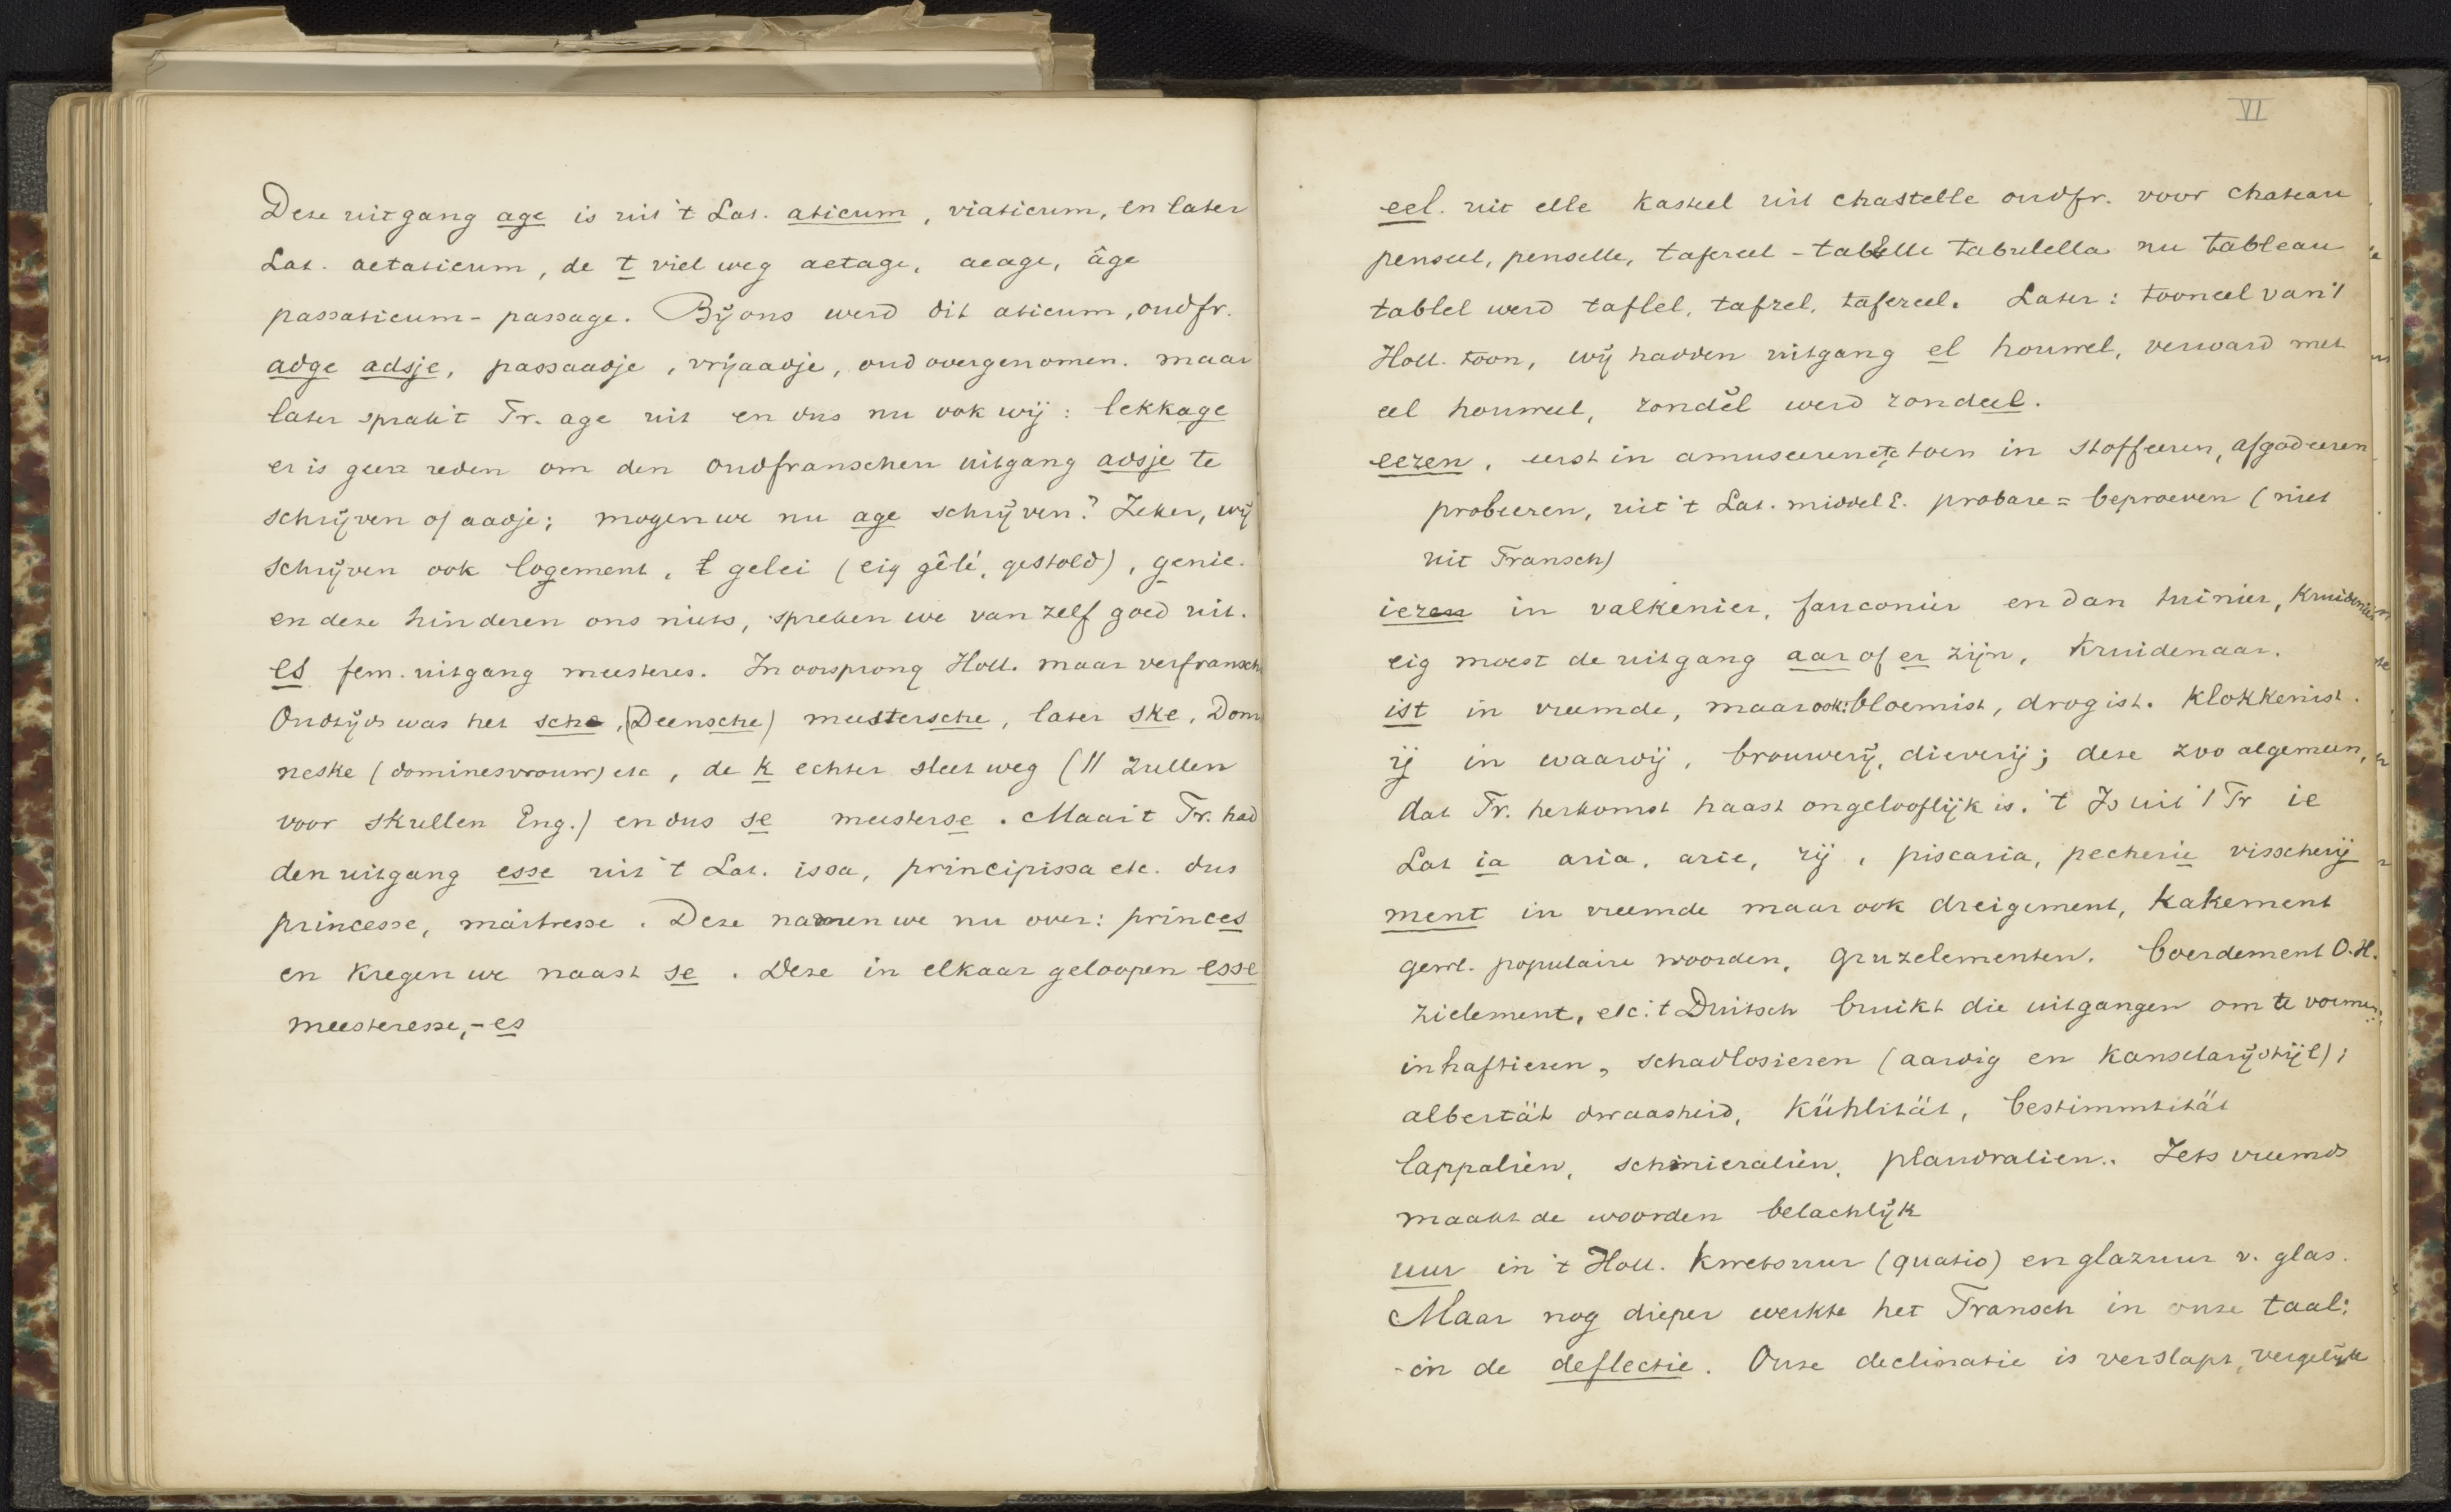 Deze uitgang age is uit 't Lat. aticum, viaticum, en later
Lat. aetaticum, de t viel weg aetage, aeage, âge
passaticum - passage. Bij ons werd dit aticum, oudfr.
adge adsje, passaadje, vrijaadje, oud overgenomen. maar
later sprak 't Fr. age uit en dus nu ook wij: lekkage
er is geen reden om den oudfranschen uitgang adsje te
schrijven of aadje; mogen we nu age schrijven? Zeker, wij
schrijven ook logement, t gelei (eig gêlé, gestold), genie.
en deze hinderen ons niets, spreken we van zelf goed uit.
es fem. uitgang meesteres. In oorsprong Holl. maar verfransch
Oudtijds was het sche, (Deensche) meestersche, later ske, Dom
neske (dominesvrouw) etc, de k echter sleet weg (|| zullen
voor skullen Eng.) en dus se meesterse. Maar 't Fr. had
den uitgang esse uit 't Lat. issa, principissa etc. dus
princesse, maitresse. Deze namen we nu over: princes
en kregen we naast se. Deze in elkaar geloopen esse
meesteresse, - es
VI
eel. uit elle kasteel uit chastelle oudfr. voor chateau
penseel, penselle, tafereel - tabelle tabulella nu tableau
tablel werd taflel, tafrel, tafereel. Later: tooneel van 't
Holl. toon, wij hadden uitgang el houwel, verward met
eel houweel, zondĕl werd zondeel.
eeren, eerst in amuseeren etc toen in stoffeeren, afgodeeren
probeeren, uit 't Lat. middel E. probare = beproeven (niet
uit Fransch)
ieren in valkenier, fauconier en dan tuinier, kruidenier
eig moest de uitgang aar of er zijn, kruidenaar.
ist in vreemde, maar ook: bloemist, drogist. klokkenist.
ij in waardij, brouwerij, dieverij; deze zoo algemeen,
dat Fr. herkomst haast ongelooflijk is. 't Is uit 't Fr ie
Lat ia aria, arie, rij, piscaria, pecherie visscherij
ment in vreemde maar ook dreigement, kakement
gewl. populaire woorden, gruzelementen. boerdement O.H.
zielement, etc. 't Duitsch bruikt die uitgangen om te vormen:
inhaftieren, schadlosieren (aardig en kanselarijstijl);
albertät dwaasheid, Kühlität, bestimmtität
lappalien, schmieralien, plaudralien.. Iets vreemds
maakt de woorden belachlijk
uur in 't Holl. kwetsuur (quatio) en glazuur v. glas.
Maar nog dieper werkte het Fransch in onze taal:
- in de deflectie. Onze declinatie is verslapt, vergelijk